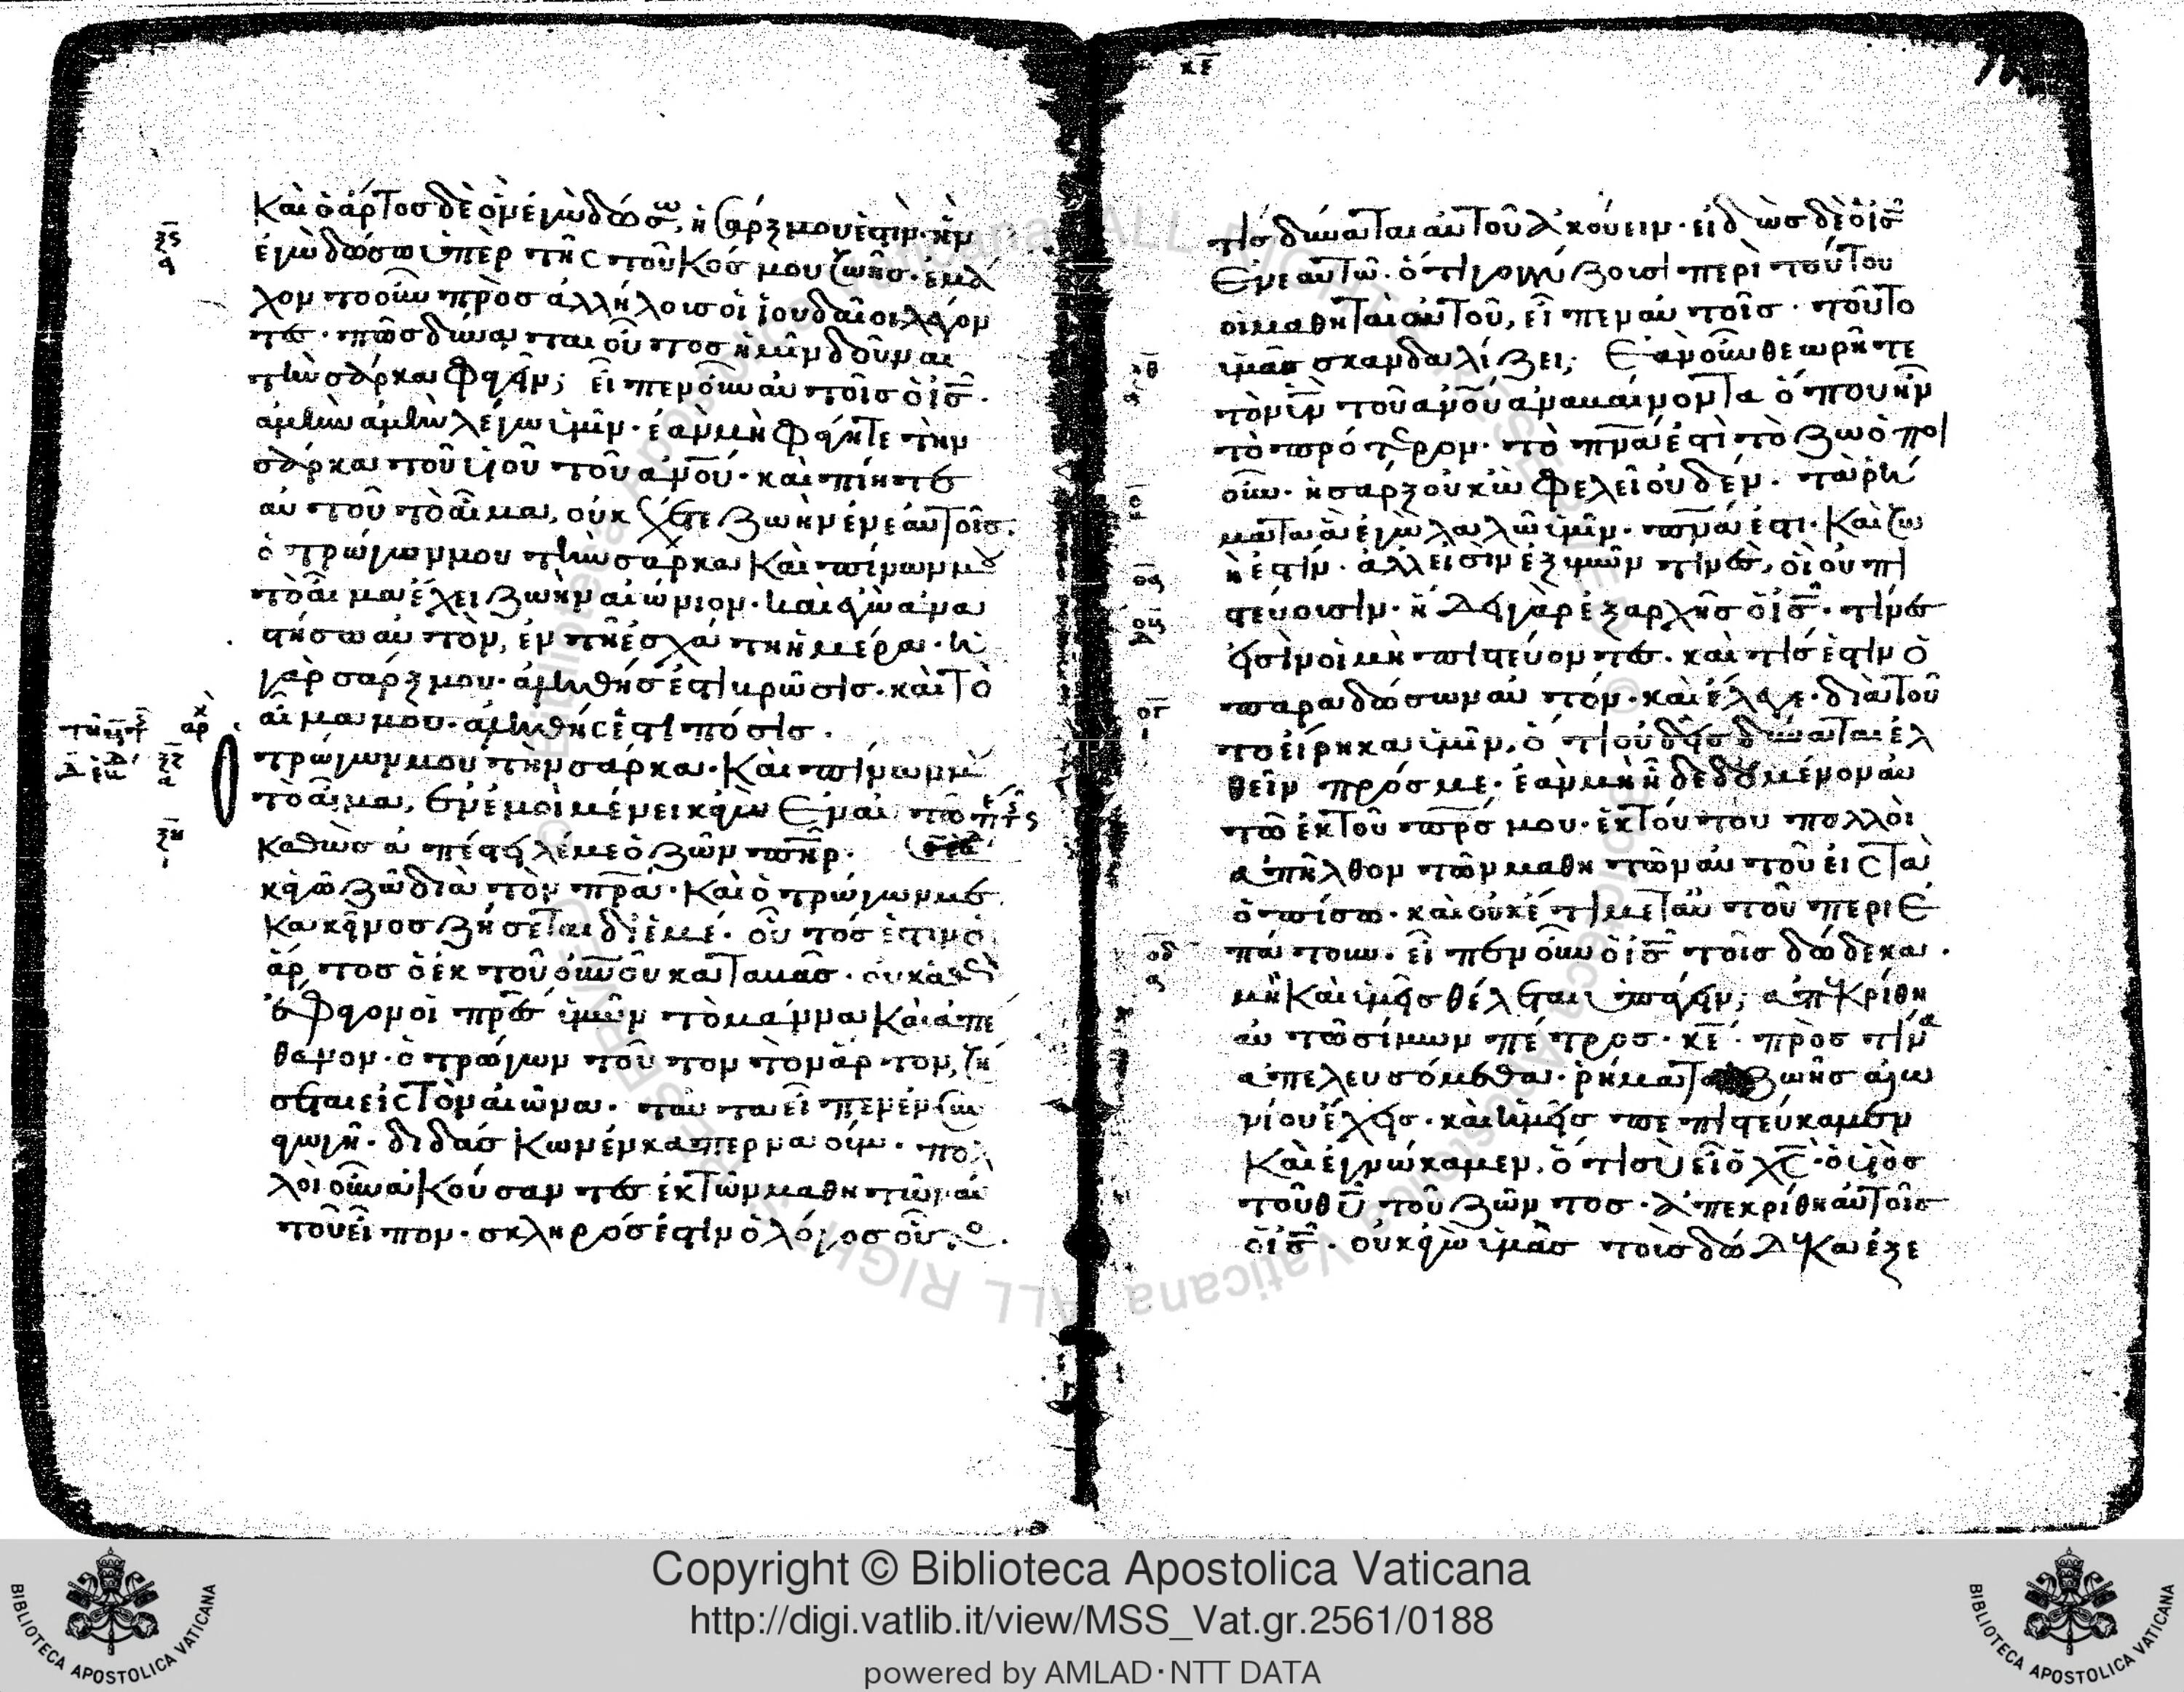 και ὁ ἄρτος δὲ ὃν ἐγὼ δώσω, ἡ σάρξ μου ἐστὶν· ἣν
ἐγὼ δώσω ὑπὲρ τῆς τοῦ κόσμου ζωῆς· ἐμά
χοντο οὖν πρὸς ἀλλήλοις οἱ ἰουδαῖοι λέγον
τες· πῶς δύναται οὗτος ἡμῖν δοῦναι
τὴν σάρκα φαγεῖν; εἶπεν οὖν αὐτοῖς ὁ ι̅ς̅·
ἀμὴν ἀμὴν λέγω ὑμῖν· ἐὰν μὴ φάγητε τὴν
σάρκα τοῦ υἱοῦ τοῦ α̅ν̅ο̅υ̅· καὶ πίητε
αὐτοῦ τὸ αἷμα, οὐκ ἔχετε ζωὴν ἐν ἑαυτοῖς.
ὁ τρώγων μου τὴν σάρκα καὶ πίνων μου
τὸ αἷμα ἔχει ζωὴν αἰώνιον· καὶ ἐγὼ ἀνα
στήσω αὐτὸν, ἐν τῆ ἐσχάτη ἡμέρα· ἡ
γὰρ σάρξ μου· ἀληθής ἐστι βρῶσις· καὶ τὸ
αἷμα μου· ἀληθής ἐστι πόσις.
τρώγων μου τὴν σάρκα· καὶ πίνων μου
τὸ αἷμα, ἐν ἐμοὶ μένει κἀγὼ ἐν αὐτῶ
καθὼς ἀπέστειλέ με ὁ ζῶν π̅η̅ρ̅·
κἀγὼ ζῶ διὰ τὸν π̅ρ̅α̅· καὶ ὁ τρώγων με·
κἀκεῖνος ζήσεται δι' ἐμέ· οὗτός ἐστιν ὁ
ἄρτος ὁ ἐκ τοῦ ο̅υ̅ν̅ο̅υ̅ καταβάς· οὐ καθὼς
ἔφαγον οἱ π̅ρ̅ε̅ς̅ ὑμῶν τὸ μάννα καὶ ἀπέ
θανον· ὁ τρώγων τοῦτον τὸν ἄρτον, ζή
σεται εἰς τὸν αἰῶνα· ταῦτα εἶπεν ἐν συν
αγωγῆ· διδάσκων ἐν καπερναούμ· πολ
λοὶ οὖν ἀκούσαντες ἐκ τῶν μαθητῶν αὐ
τοῦ εἶπον· σκληρός ἐστιν ὁ λόγος οὗτος.
κε
τίς δύναται αὐτοῦ ἀκούειν· εἰδὼς δὲ ὁ ι̅ς̅
ἐν ἑαυτῶ· ὅτι γογγύζουσι περὶ τούτου
οἱ μαθηταὶ αὐτοῦ, εἶπεν αὐτοῖς· τοῦτο
ὑμᾶς σκανδαλίζει; ἐὰν οὖν θεωρῆτε
τὸν υ̅ν̅ τοῦ α̅ν̅ο̅υ̅ ἀναβαίνοντα ὅπου ἦν
τὸ πρότερον· τὸ π̅ν̅α̅ ἐστὶ τὸ ζωοποι
οῦν· ἡ σὰρξ οὐκ ὠφελεῖ οὐδέν· τὰ ῥή
ματα ἃ ἐγὼ λαλῶ ὑμῖν· π̅ν̅α̅ ἐστι· καὶ ζω
ή ἐστιν· ἀλλ' εἰσὶν ἐξ ὑμῶν τινές, οἳ οὐ πι
στεύουσιν· ἤδει γὰρ ἐξ ἀρχῆς ὁ ι̅ς̅· τίνες
εἰσὶν οἱ μὴ πιστεύοντες· καὶ τίς ἐστιν ὁ
παραδώσων αὐτόν· καὶ ἔλεγε· διὰ τοῦ
το εἴρηκα ὑμῖν, ὅτι οὐδεὶς δύναται ἐλ
θεῖν πρός με· ἐὰν μὴ ἦ δεδομένον αὐ
τῶ ἐκ τοῦ π̅ρ̅ς̅ μου· ἐκ τούτου πολλοὶ
ἀπῆλθον τῶν μαθητῶν αὐτοῦ εἰς τὰ
ὀπίσω· καὶ οὐκέτι μετ' αὐτοῦ περιε
πάτουν. εἶπεν οὖν ὁ ι̅ς̅ τοῖς δώδεκα·
μὴ καὶ ὑμεῖς θέλεται ὑπάγειν; ἀπεκρίθη
αὐτῶ σίμων πέτρος· κ̅ε̅· πρὸς τίνα
ἀπελευσόμεθα· ῥήματα ζωῆς αἰω
νίου ἔχεις· καὶ ἡμεῖς πεπιστεύκαμεν
καὶ ἐγνώκαμεν, ὅτι σὺ εἶ ὁ χ̅ς̅ ὁ υἱὸς
τοῦ θ̅υ̅ τοῦ ζῶντος· ἀπεκρίθη αὐτοῖς
ὁ ι̅ς̅· οὐκ ἐγὼ ὑμᾶς τοὺς δώδεκα ἐξε
Copyright © Biblioteca Apostolica Vaticana
http://digi.vatlib.it/view/MSS_Vat.gr.2561/0188
powered by AMLAD·NTT DATA
BIBLIOTECA APOSTOLICA VATICANA
BIBLIOTECA APOSTOLICA VATICANA